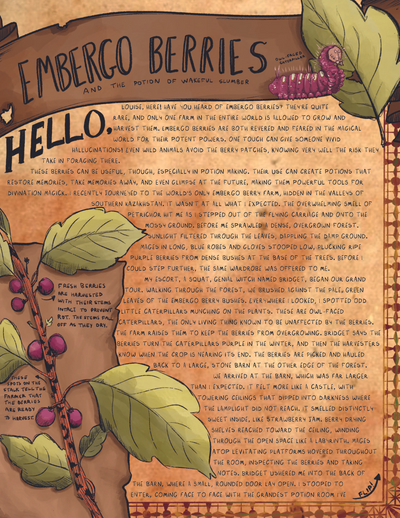 EMBERGO BERRIES
AND THE POTION OF WAKEFUL SLUMBER
HELLO,
LOUISE, HERE! HAVE YOU HEARD OF EMBERGO BERRIES? THEY'RE QUITE
RARE, AND ONLY ONE FARM IN THE ENTIRE WORLD IS ALLOWED TO GROW AND
HARVEST THEM. EMBERGO BERRIES ARE BOTH REVERED AND FEARED IN THE MAGICAL
WORLD FOR THEIR POTENT POWERS. ONE TOUCH CAN GIVE SOMEONE VIVID
HALLUCINATIONS! EVEN WILD ANIMALS AVOID THE BERRY PATCHES, KNOWING VERY WELL THE RISK THEY
TAKE IN FORAGING THERE.
THESE BERRIES CAN BE USEFUL, THOUGH, ESPECIALLY IN POTION MAKING. THEIR USE CAN CREATE POTIONS THAT
RESTORE MEMORIES, TAKE MEMORIES AWAY, AND EVEN GLIMPSE AT THE FUTURE, MAKING THEM POWERFUL TOOLS FOR
DIVINATION MAGICK. I RECENTLY JOURNEYED TO THE WORLD'S ONLY EMBERGO BERRY FARM, HIDDEN IN THE VALLEYS OF
SOUTHERN KAZAKHSTAN. IT WASN'T AT ALL WHAT I EXPECTED. THE OVERWHELMING SMELL OF
PETRICHOR HIT ME AS I STEPPED OUT OF THE FLYING CARRIAGE AND ONTO THE
MOSSY GROUND. BEFORE ME SPRAWLED A DENSE, OVERGROWN FOREST.
SUNLIGHT FILTERED THROUGH THE LEAVES, DAPPLING THE DAMP GROUND.
MAGES IN LONG, BLUE ROBES AND GLOVES STOOPED LOW, PLUCKING RIPE
PURPLE BERRIES FROM DENSE BUSHES AT THE BASE OF THE TREES. BEFORE I
COULD STEP FURTHER, THE SAME WARDROBE WAS OFFERED TO ME.
MY ESCORT, A SQUAT, GENIAL WITCH NAMED BRIDGET, BEGAN OUR GRAND
TOUR. WALKING THROUGH THE FOREST, WE BRUSHED AGAINST THE PALE, GREEN
LEAVES OF THE EMBERGO BERRY BUSHES. EVERYWHERE I LOOKED, I SPOTTED ODD,
LITTLE CATERPILLARS MUNCHING ON THE PLANTS. THESE ARE OWL-FACED
CATERPILLARS, THE ONLY LIVING THING KNOWN TO BE UNAFFECTED BY THE BERRIES.
THE FARM RAISES THEM TO KEEP THE BERRIES FROM OVERGROWING. BRIDGET SAYS THE
BERRIES TURN THE CATERPILLARS PURPLE IN THE WINTER, AND THEN THE HARVESTERS
KNOW WHEN THE CROP IS NEARING ITS END. THE BERRIES ARE PICKED AND HAULED
BACK TO A LARGE, STONE BARN AT THE OTHER EDGE OF THE FOREST.
WE ARRIVED AT THE BARN, WHICH WAS FAR LARGER
THAN I EXPECTED. IT FELT MORE LIKE A CASTLE, WITH
TOWERING CEILINGS THAT DIPPED INTO DARKNESS WHERE
THE LAMPLIGHT DID NOT REACH. IT SMELLED DISTINCTLY
SWEET INSIDE, LIKE STRAWBERRY JAM. BERRY DRYING
SHELVES REACHED TOWARD THE CEILING, WINDING
THROUGH THE OPEN SPACE LIKE A LABYRINTH. MAGES
ATOP LEVITATING PLATFORMS HOVERED THROUGHOUT
THE ROOM, INSPECTING THE BERRIES AND TAKING
NOTES. BRIDGET USHERED ME INTO THE BACK OF
THE BARN, WHERE A SMALL, ROUNDED DOOR LAY OPEN. I STOOPED TO
ENTER, COMING FACE TO FACE WITH THE GRANDEST POTION ROOM I'VE
FLIP!
FRESH BERRIES
ARE HARVESTED
WITH THEIR STEMS
INTACT TO PREVENT
ROT. THE STEMS FALL
OFF AS THEY DRY.
THESE
SPOTS ON THE
STALK TELL THE
FARMER THAT
THE BERRIES
ARE READY
TO HARVEST.